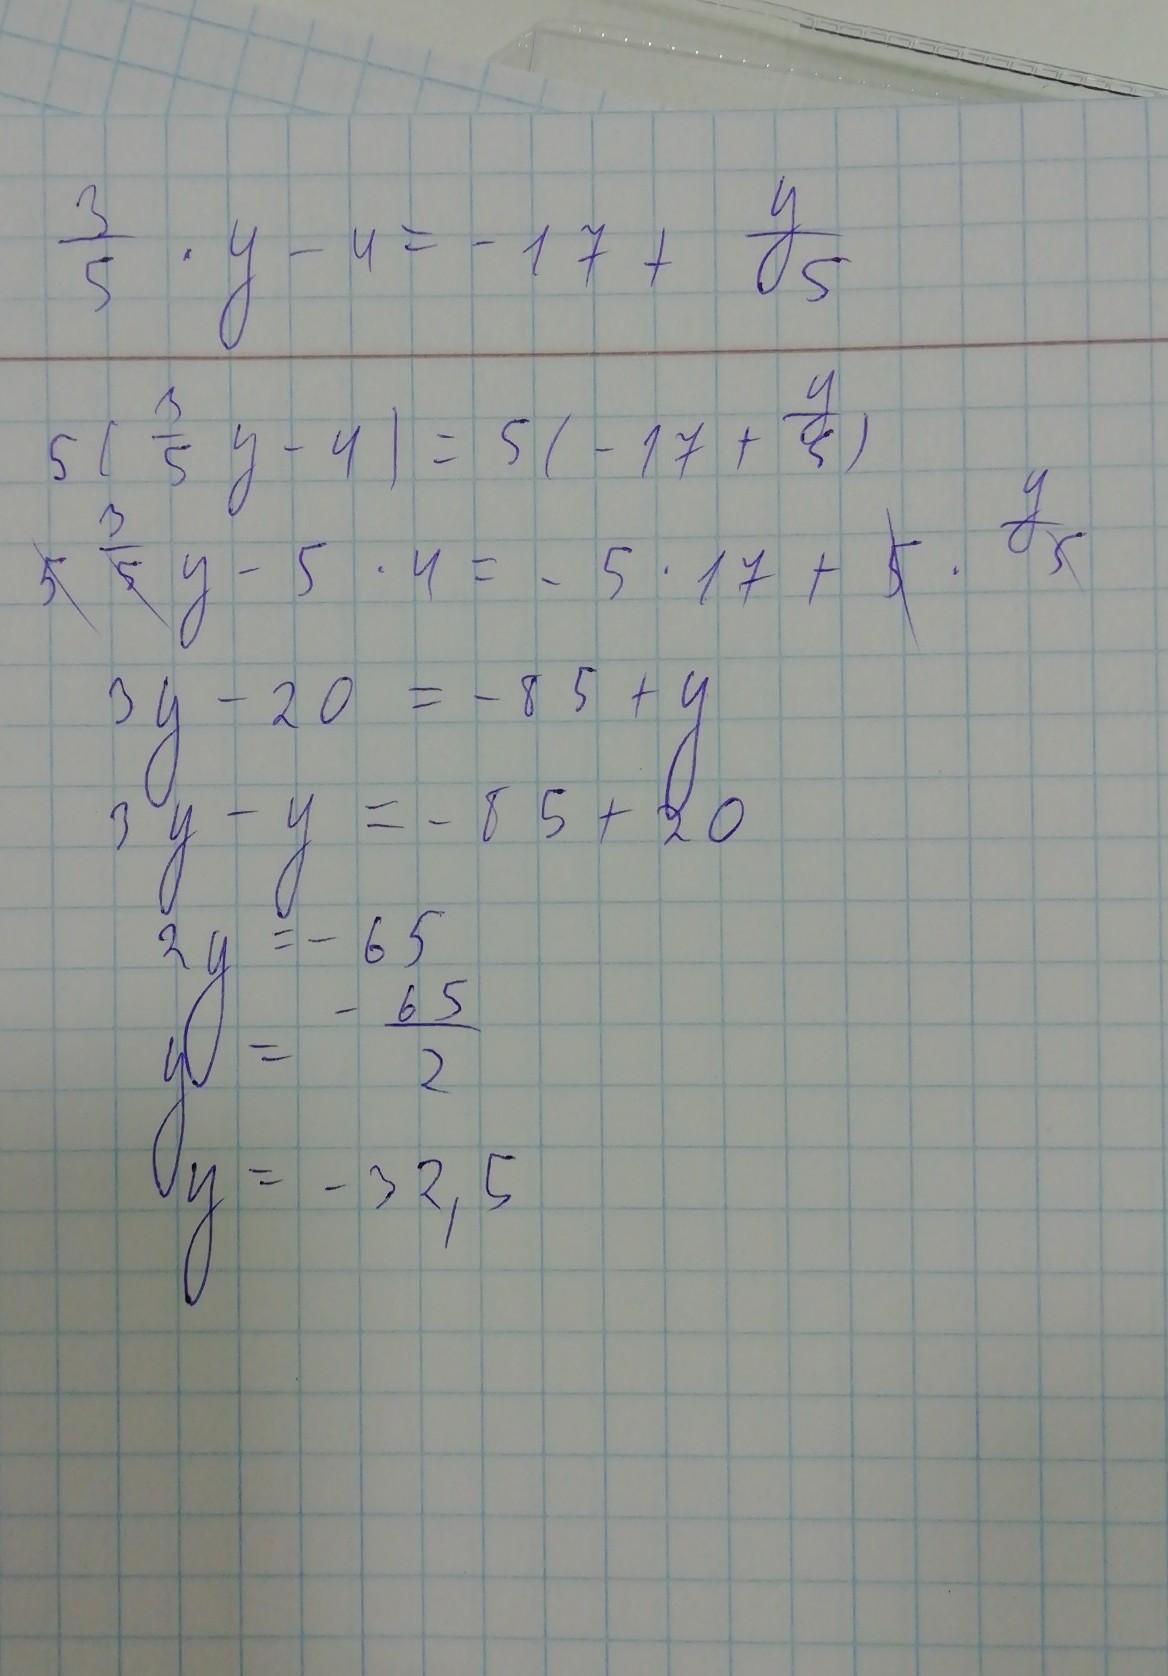 3/5 · y - 4 = -17 + y/5
5(3/5 y - 4) = 5(-17 + y/5)
5 3/5 y - 5 · 4 = - 5 · 17 + 5 · y/5
3y - 20 = -85 + y
3y - y = -85 + 20
2y = -65
y = -65/2
y = -32,5